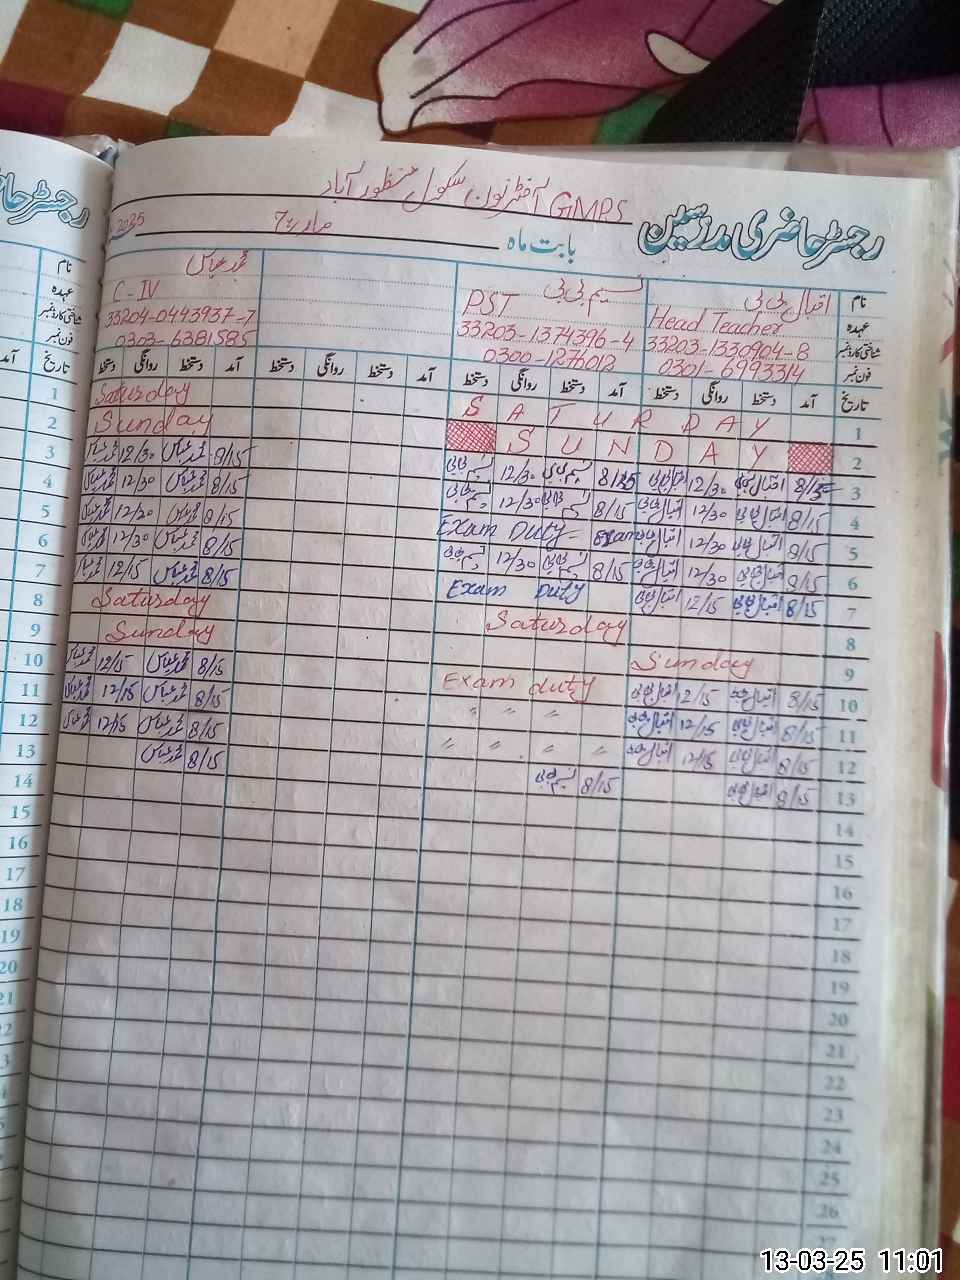 GMPS آفٹرنون سکول منظور آباد
رجسٹر حاضری مدرسین
بابت ماہ مارچ 2025
نام اقبال بی بی نسیم بی بی محمد عباس
عہدہ Head Teacher PST C-IV
شناختی کارڈ نمبر 33203-1330904-8 33203-1374396-4 33204-0443937-7
فون نمبر 0301-6993314 0300-1276012 0303-6381585
تاریخ آمد دستخط روانگی دستخط آمد دستخط روانگی دستخط آمد دستخط روانگی دستخط آمد دستخط روانگی دستخط
1 SATURDAY Saturday
2 SUNDAY Sunday
3 اقبال بی بی 12/30 اقبال بی بی 8/15 نسیم بی بی 12/30 نسیم بی بی 8/15 محمد عباس 12/30 محمد عباس
4 8/15 اقبال بی بی 12/30 اقبال بی بی 8/15 نسیم بی بی 12/30 نسیم بی بی 8/15 محمد عباس 12/30 محمد عباس
5 8/15 اقبال بی بی 12/30 اقبال بی بی Exam Duty - Exam 8/15 محمد عباس 12/30 محمد عباس
6 8/15 اقبال بی بی 12/30 اقبال بی بی 8/15 نسیم بی بی 12/30 نسیم بی بی 8/15 محمد عباس 12/30 محمد عباس
7 8/15 اقبال بی بی 12/15 اقبال بی بی Exam Duty 8/15 محمد عباس 12/15 محمد عباس
8 Saturday Saturday
9 Sunday Sunday
10 8/15 اقبال بی بی 12/15 اقبال بی بی Exam duty 8/15 محمد عباس 12/15 محمد عباس
11 8/15 اقبال بی بی 12/15 اقبال بی بی " " " 8/15 محمد عباس 12/15 محمد عباس
12 8/15 اقبال بی بی 12/15 اقبال بی بی " " " " 8/15 محمد عباس 12/15 محمد عباس
13 8/15 اقبال بی بی 8/15 نسیم بی بی 8/15 محمد عباس
14
15
16
17
18
19
20
21
22
23
24
25
26
27
13-03-25 11:01